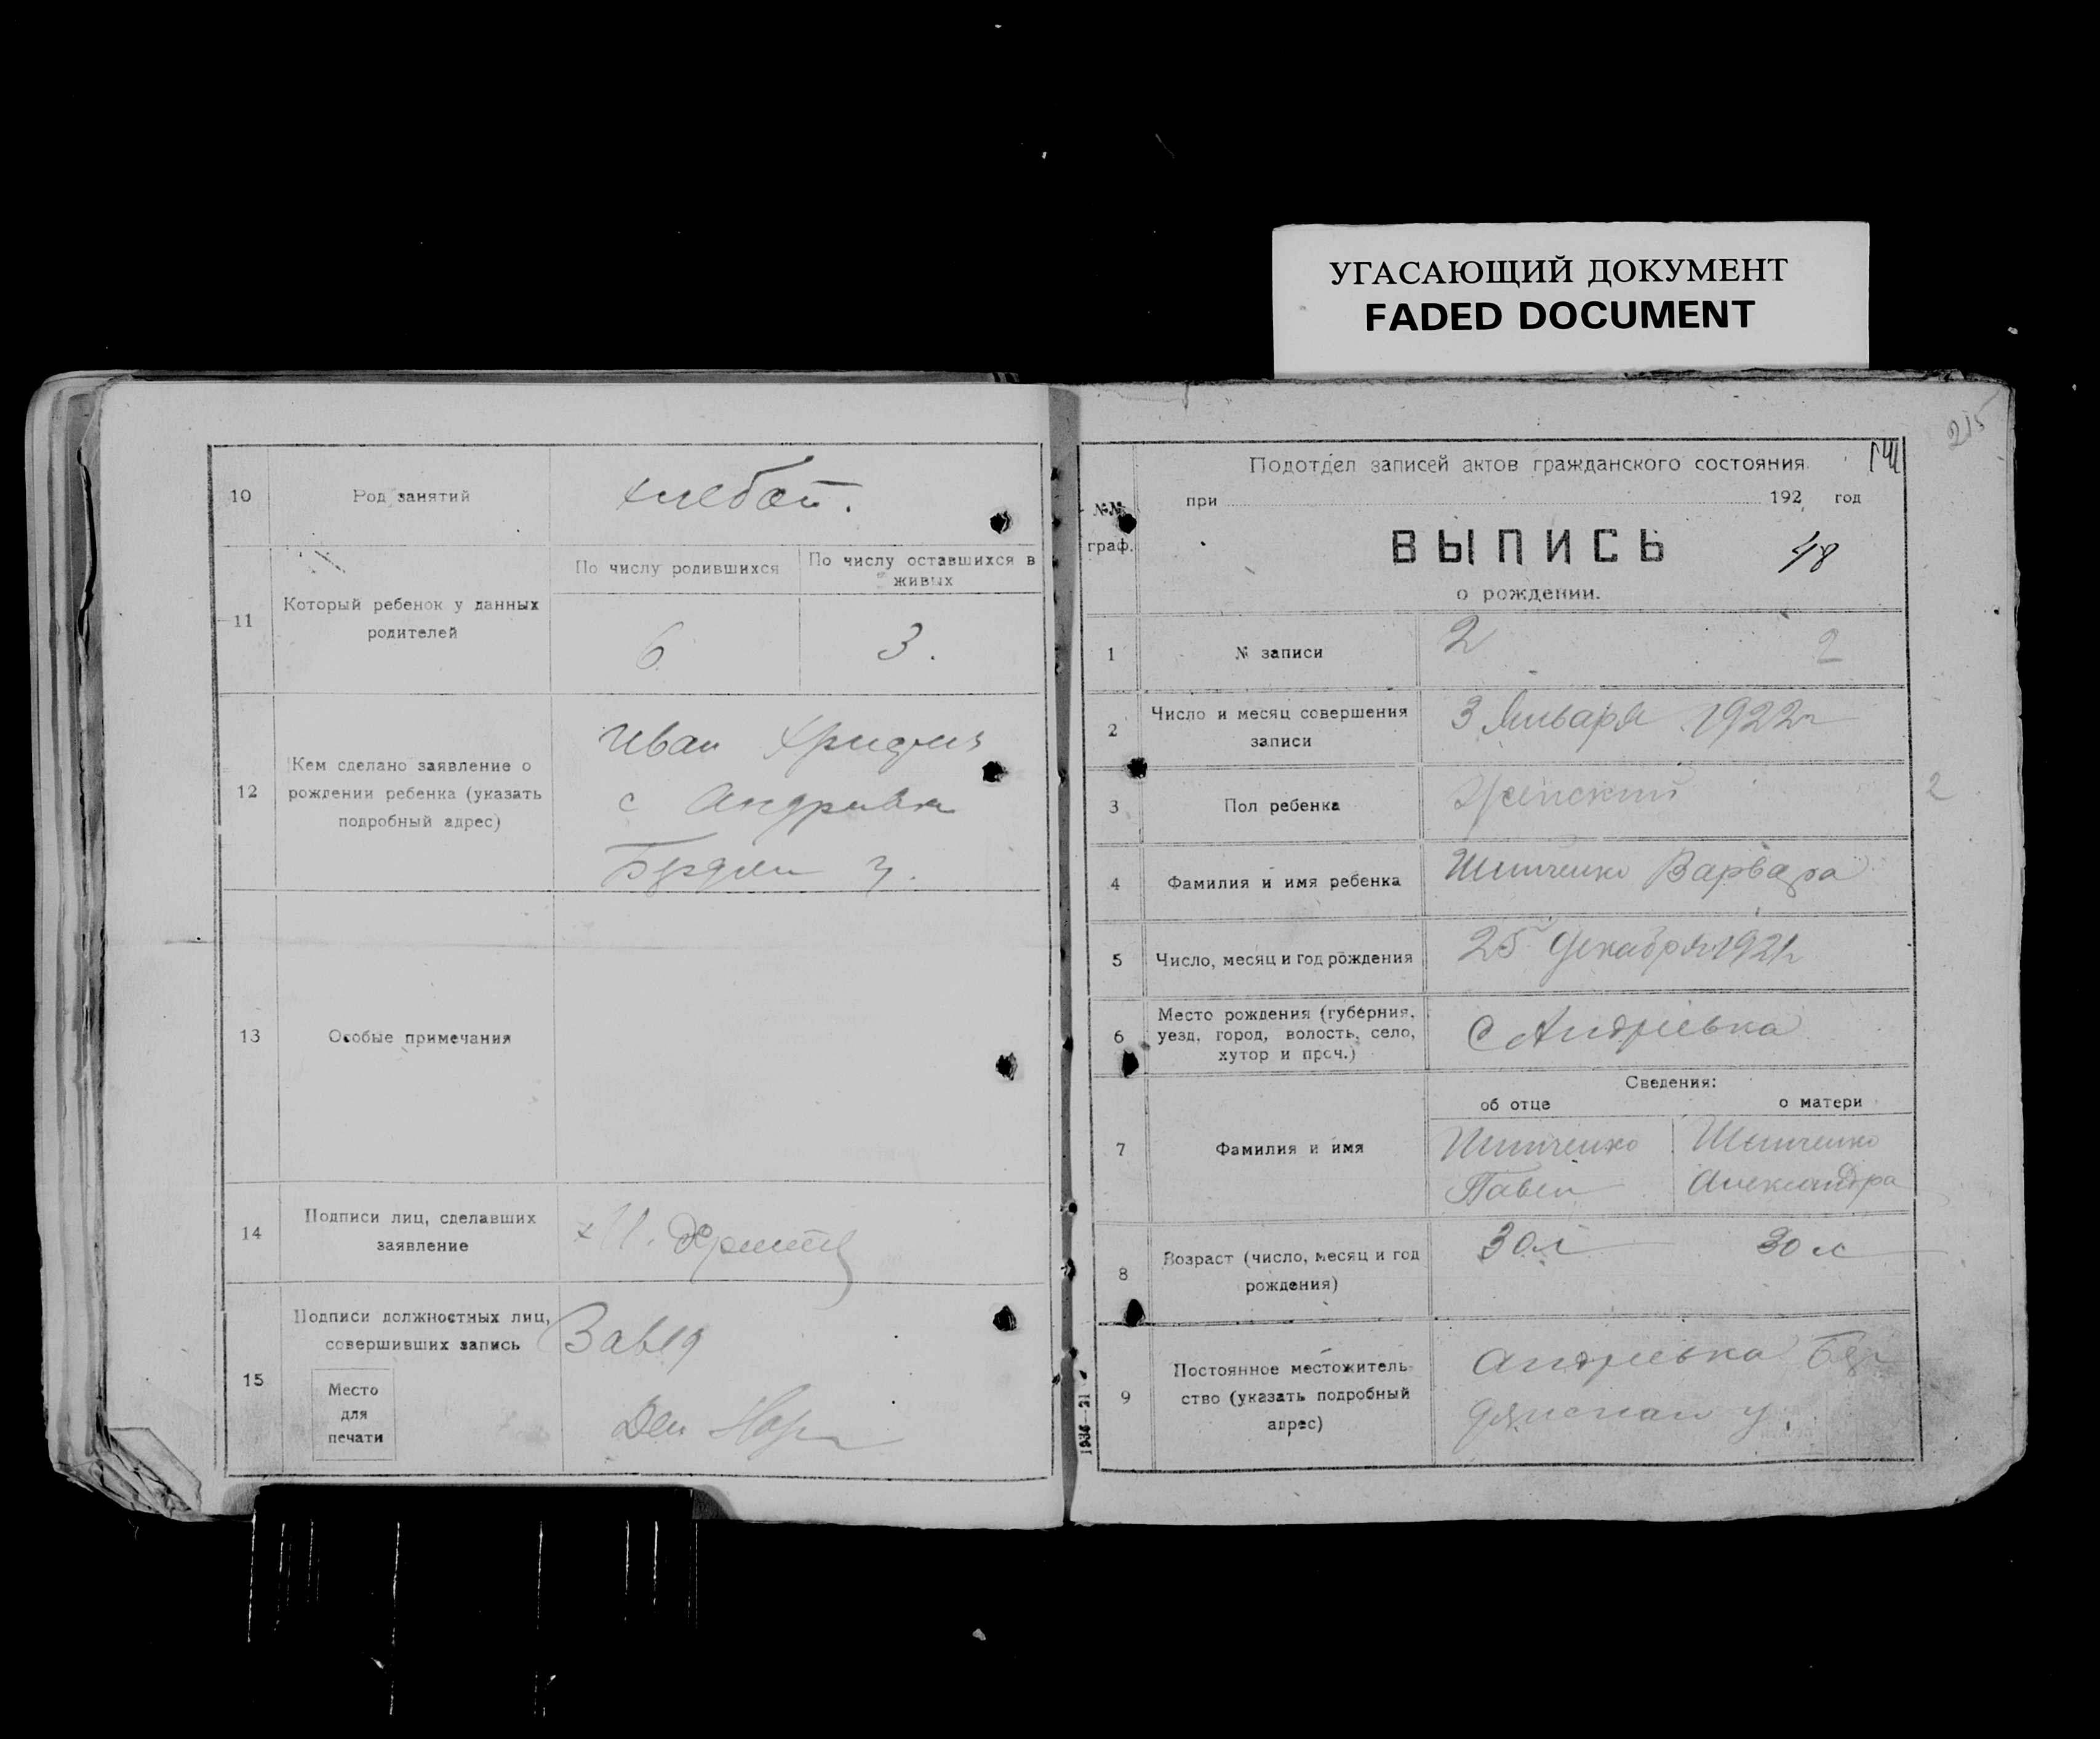 УГАСАЮЩИЙ ДОКУМЕНТ
FADED DOCUMENT
10
Род занятий
хлебоп.
11
Который ребенок у данных
родителей
По числу родившихся
По числу оставшихся в
живых
6
3.
12
Кем сделано заявление о
рождении ребенка (указать
подробный адрес)
Иван
с
13
Особые примечания
14
Подписи лиц, сделавших
заявление
15
Подписи должностных лиц,
совершивших запись
Место
для
печати
Завед
215
№№
граф.
Подотдел записей актов гражданского состояния
при 192 год
ВЫПИСЬ
48
о рождении.
1
№ записи
2
2
2
Число и месяц совершения
записи
3 Января 1922г
3
Пол ребенка
Женский
2
4
Фамилия и имя ребенка
Шипченко Варвара
5
Число, месяц и год рождения
25 Декабря 1921г
6
Место рождения (губерния,
уезд, город, волость, село,
хутор и проч.)
С Андріевка
Сведения:
об отце
о матери
7
Фамилия и имя
Шипченко
Павел
Шипченко
Александра
8
Возраст (число, месяц и год
рождения)
30л
30 л
9
Постоянное местожитель-
ство (указать подробный
адрес)
Андріевка Бер
дянскаго у.
1936—21